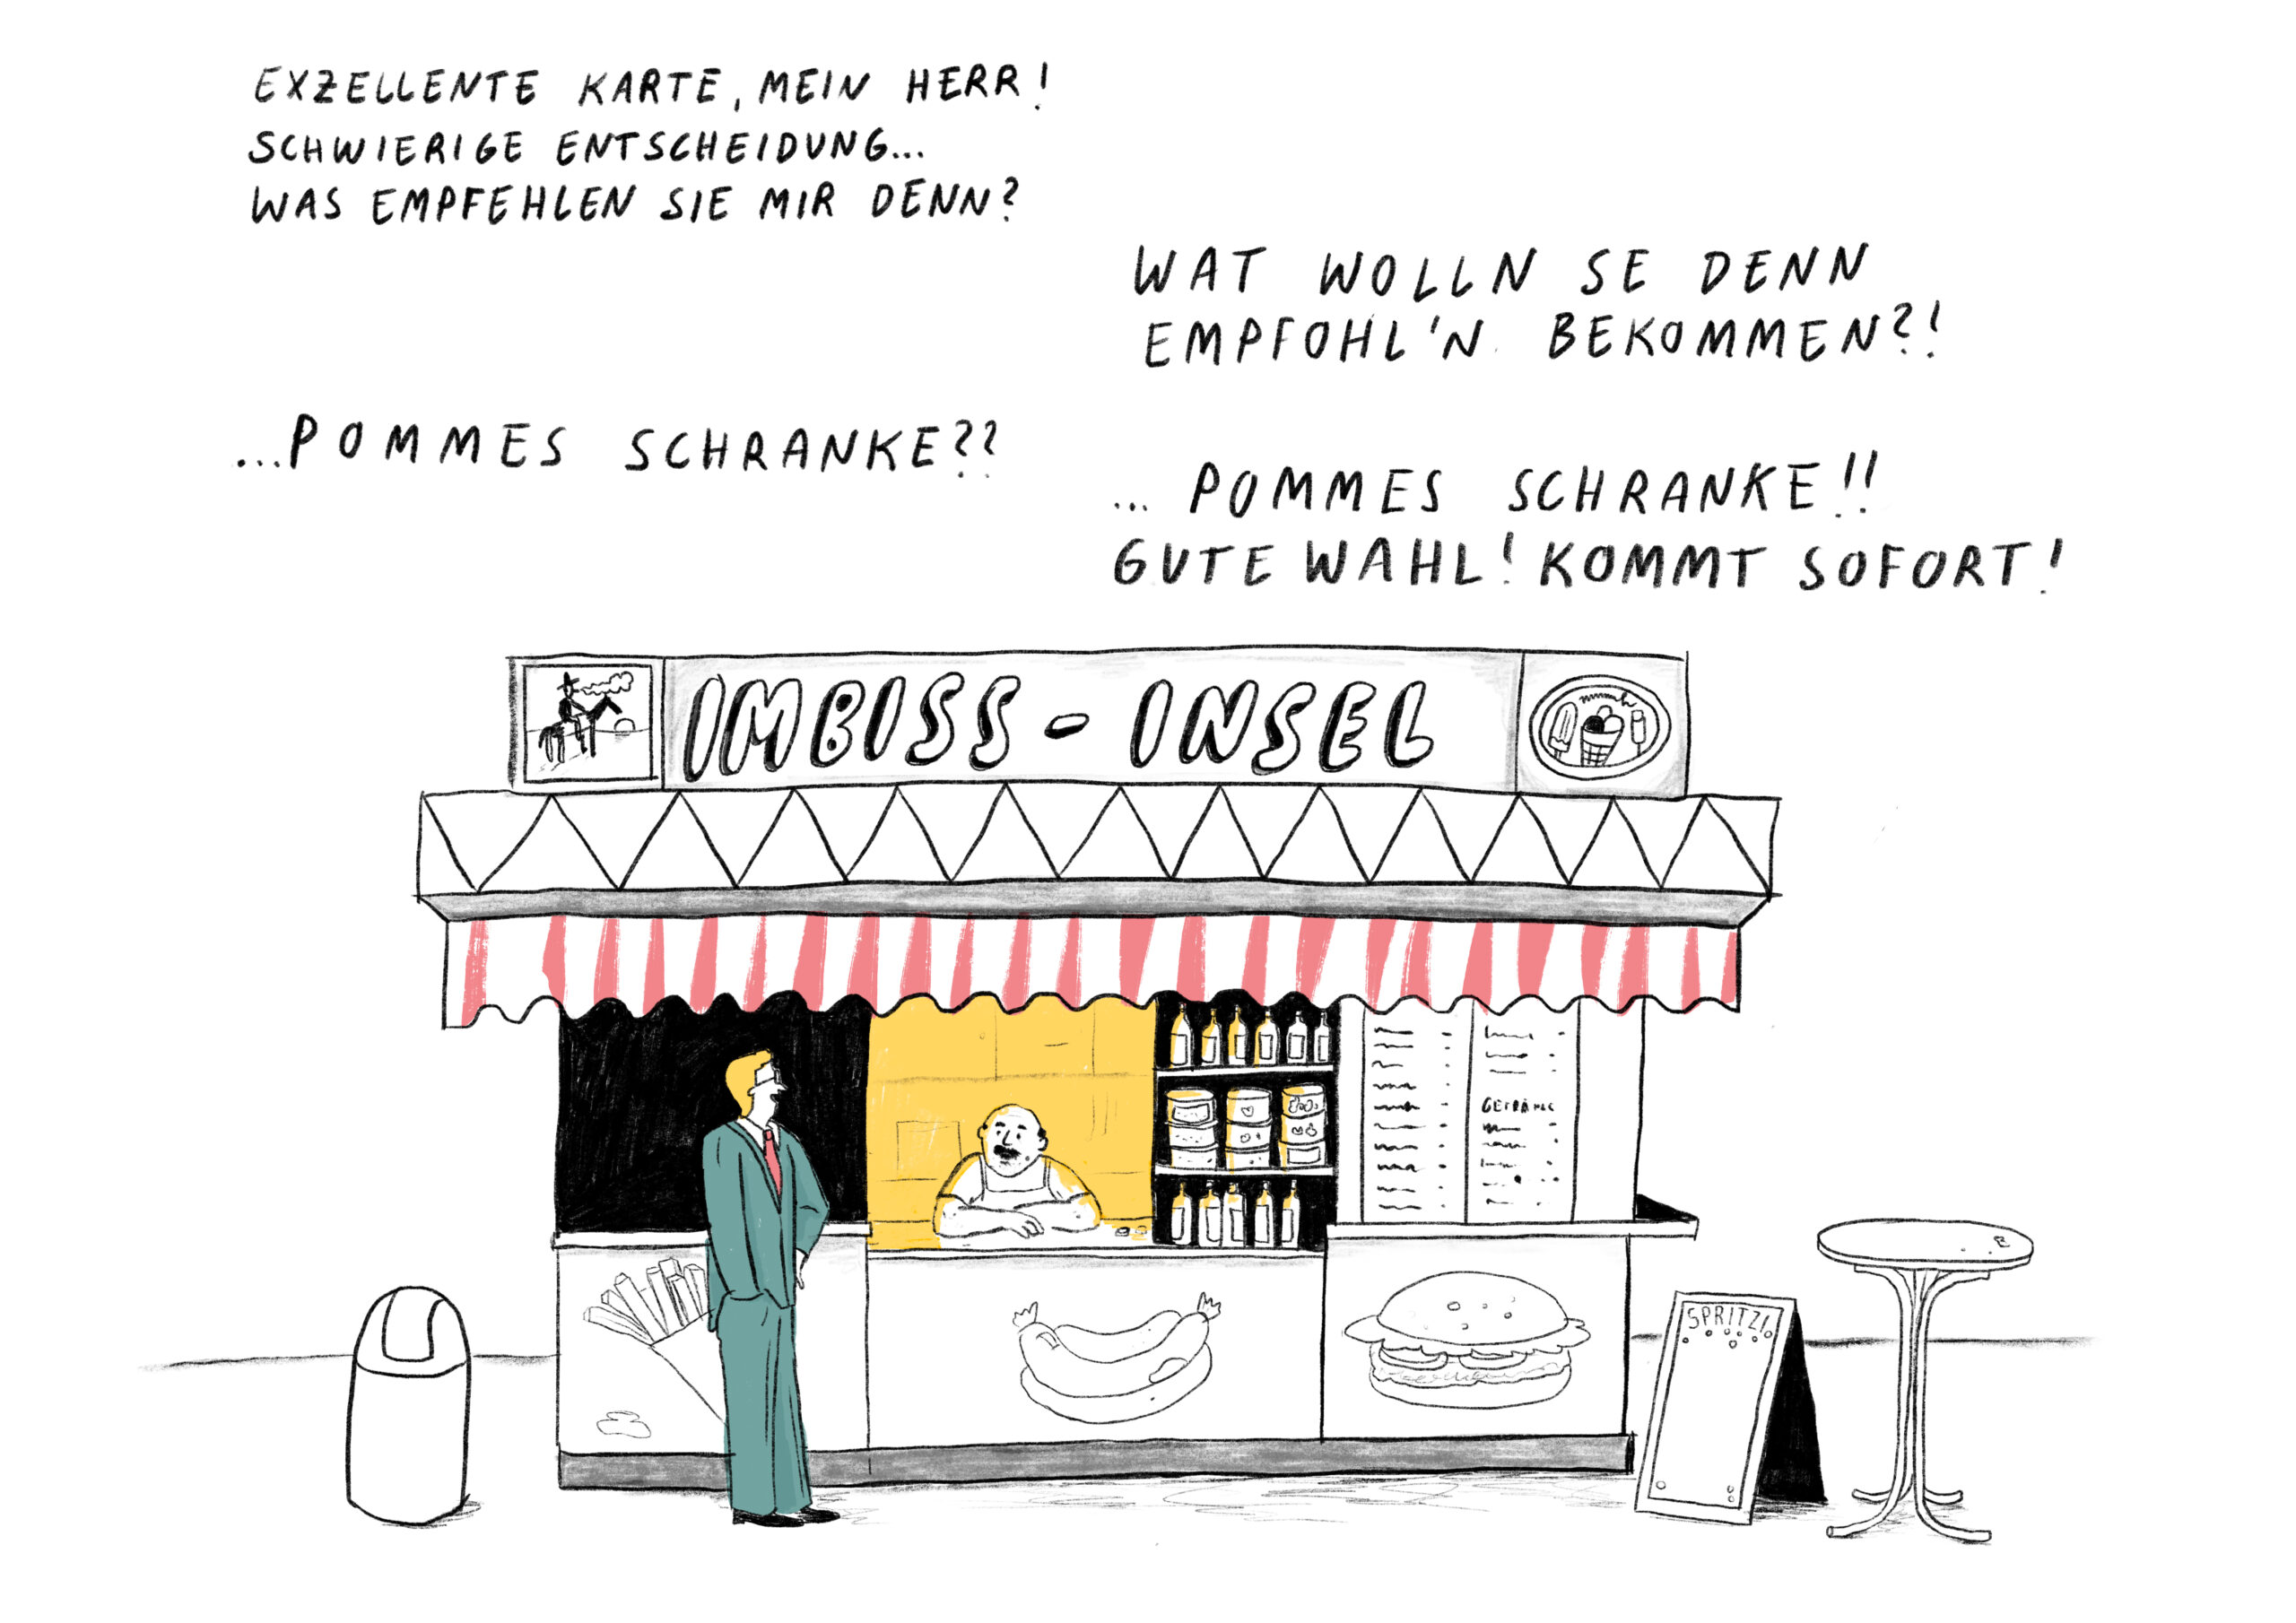 EXZELLENTE KARTE, MEIN HERR!
SCHWIERIGE ENTSCHEIDUNG...
WAS EMPFEHLEN SIE MIR DENN?
WAT WOLLN SE DENN
EMPFOHL'N BEKOMMEN?!
...POMMES SCHRANKE??
... POMMES SCHRANKE!!
GUTE WAHL! KOMMT SOFORT!
IMBISS-INSEL
SPRITZI